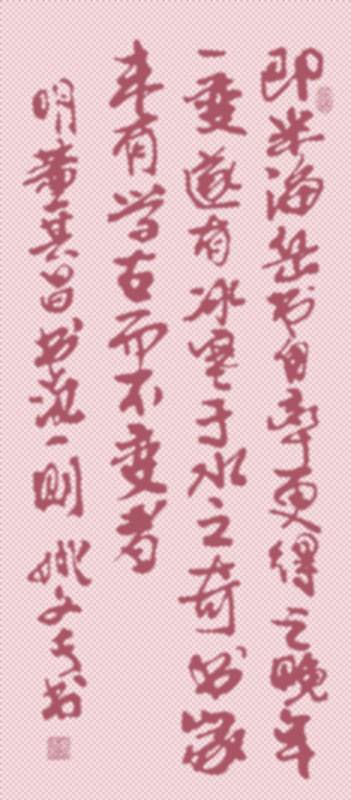 即米海岳书自率更得之晚年
一变遂有冰寒于水之奇书家
未有学古而不变者
明董其昌书说一則 姚文书